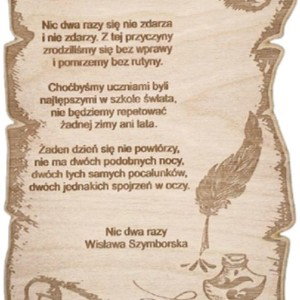 Nic dwa razy się nie zdarza
i nie zdarzy. Z tej przyczyny
zrodziliśmy się bez wprawy
i pomrzemy bez rutyny.
Choćbyśmy uczniami byli
najtępszymi w szkole świata,
nie będziemy repetować
żadnej zimy ani lata.
Żaden dzień się nie powtórzy,
nie ma dwóch podobnych nocy,
dwóch tych samych pocałunków,
dwóch jednakich spojrzeń w oczy.
Nic dwa razy
Wisława Szymborska